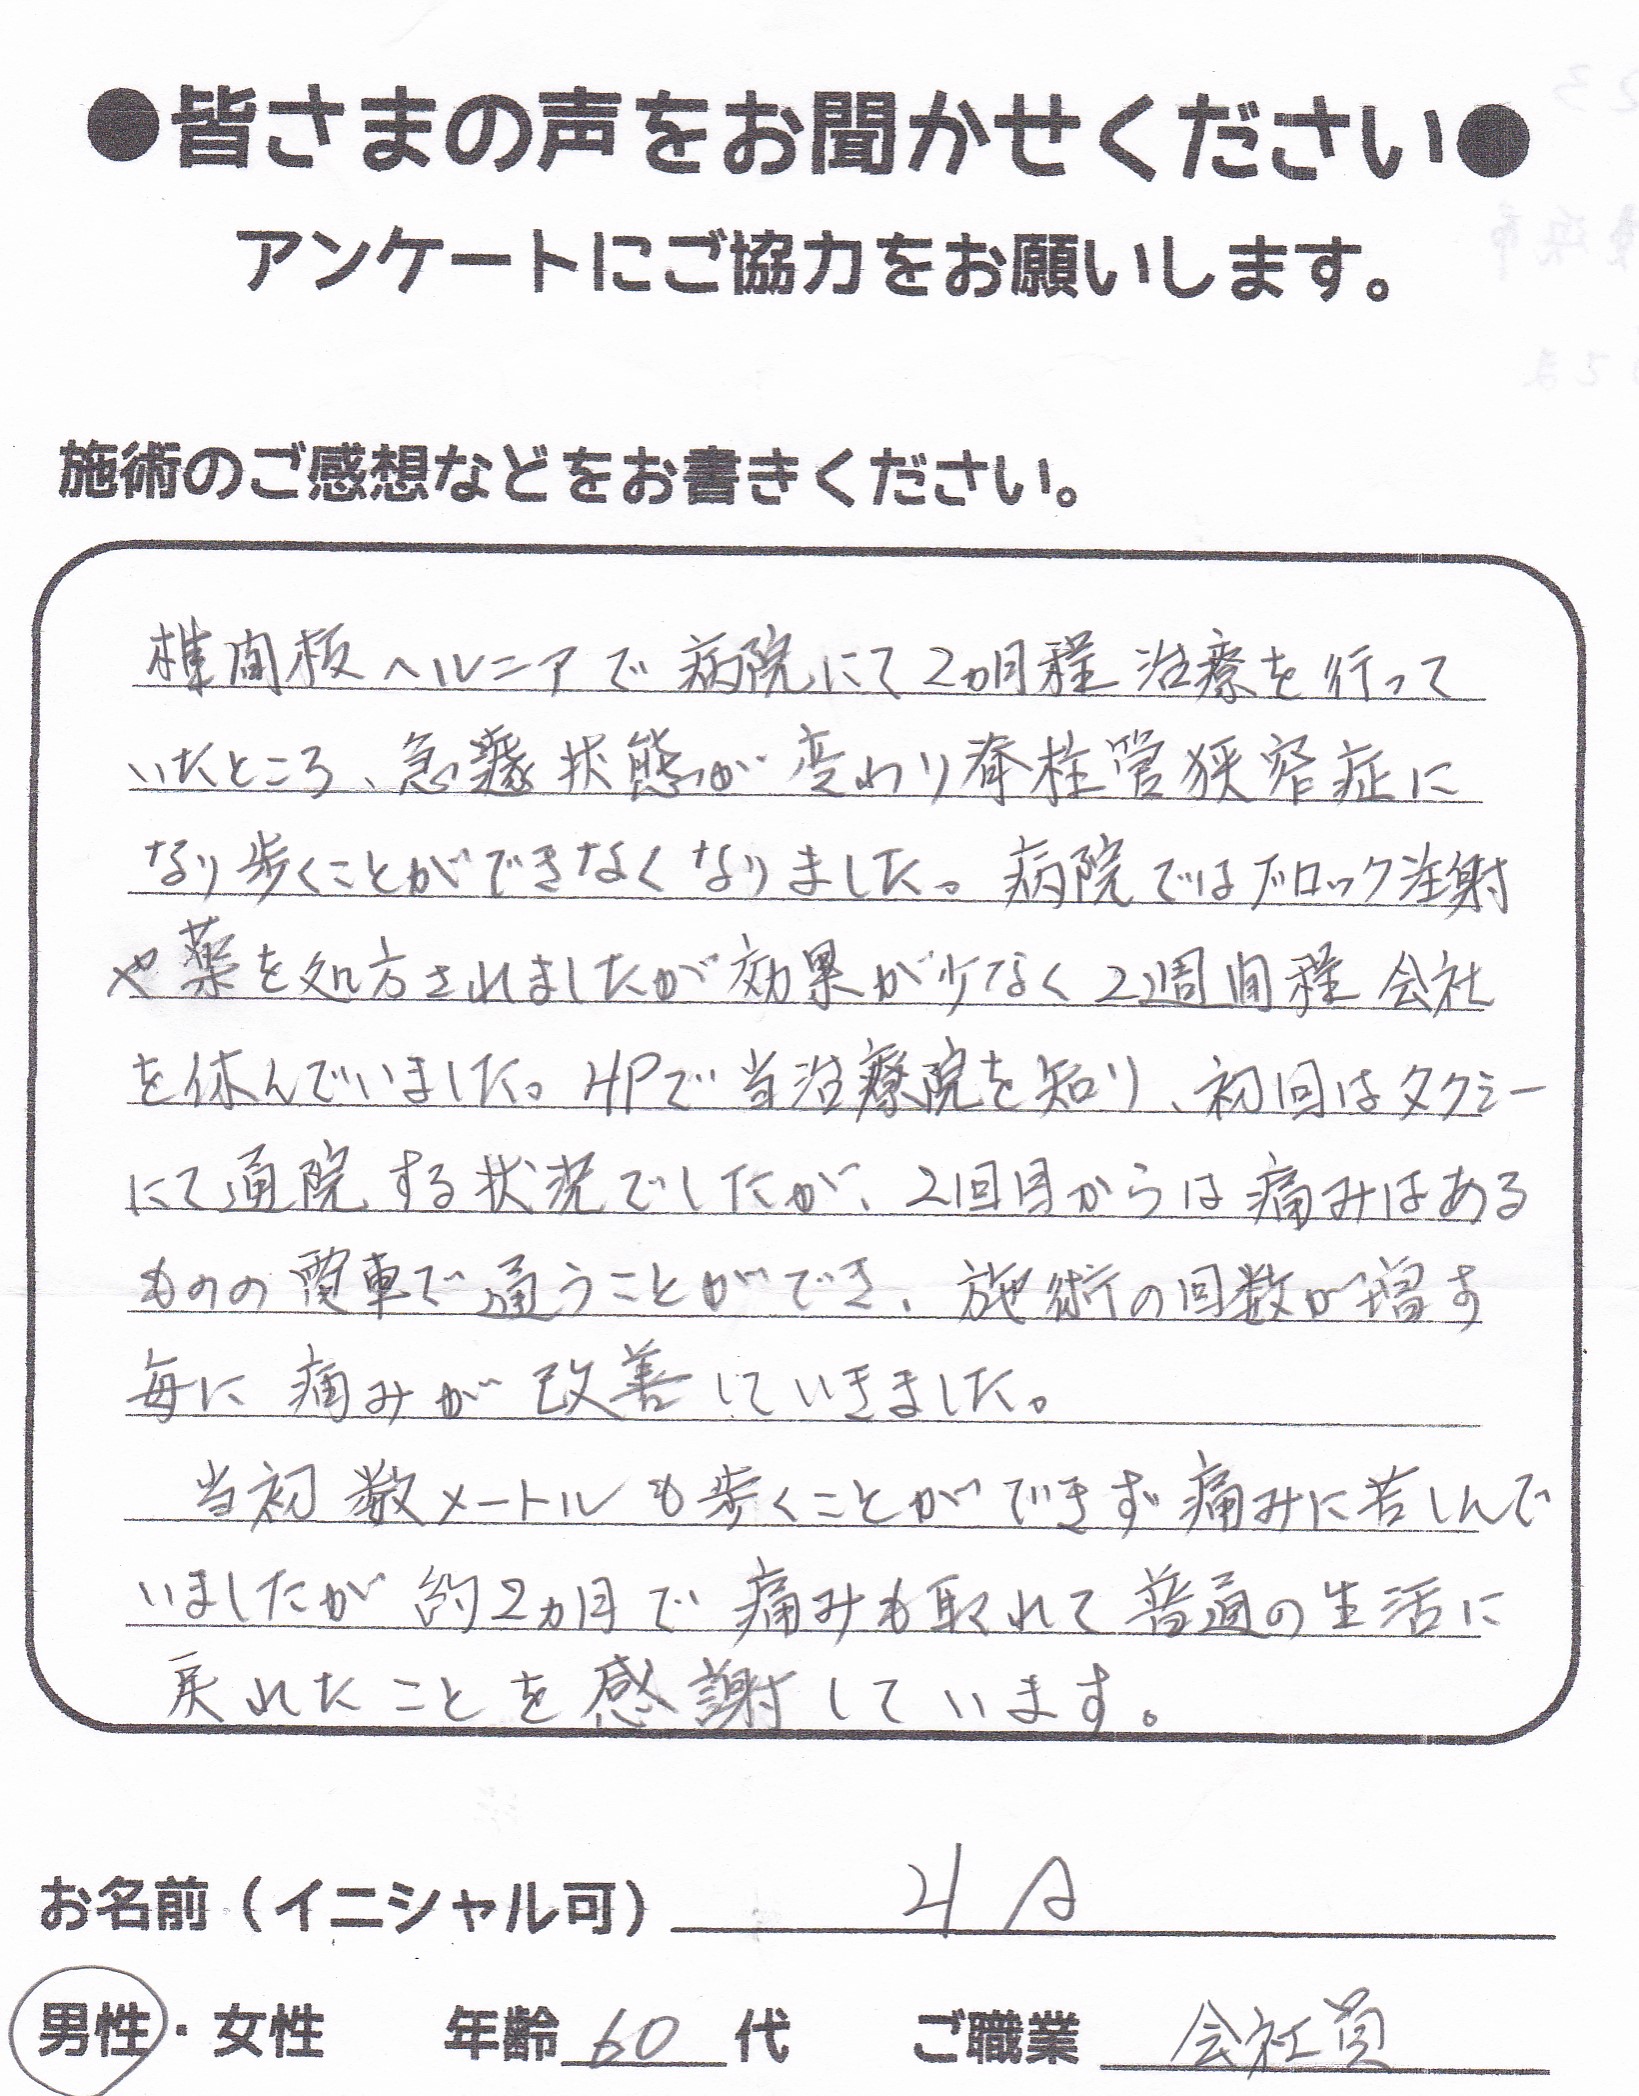 ●皆さまの声をお聞かせください●
アンケートにご協力をお願いします。
施術のご感想などをお書きください。
椎間板ヘルニアで病院にて2カ月程治療を行って
いたところ、急遽状態が変わり脊柱管狭窄症に
なり歩くことができなくなりました。病院ではブロック注射
や薬を処方されましたが効果が少なく2週間程会社
を休んでいました。HPで当治療院を知り、初回はタクシー
にて通院する状況でしたが、2回目からは痛みはある
ものの電車で通うことができ、施術の回数が増す
毎に痛みが改善していきました。
当初数メートルも歩くことができず痛みに苦しんで
いましたが約2カ月で痛みも取れて普通の生活に
戻れたことを感謝しています。
お名前（イニシャル可）
男性・女性 年齢 60 代 ご職業 会社員